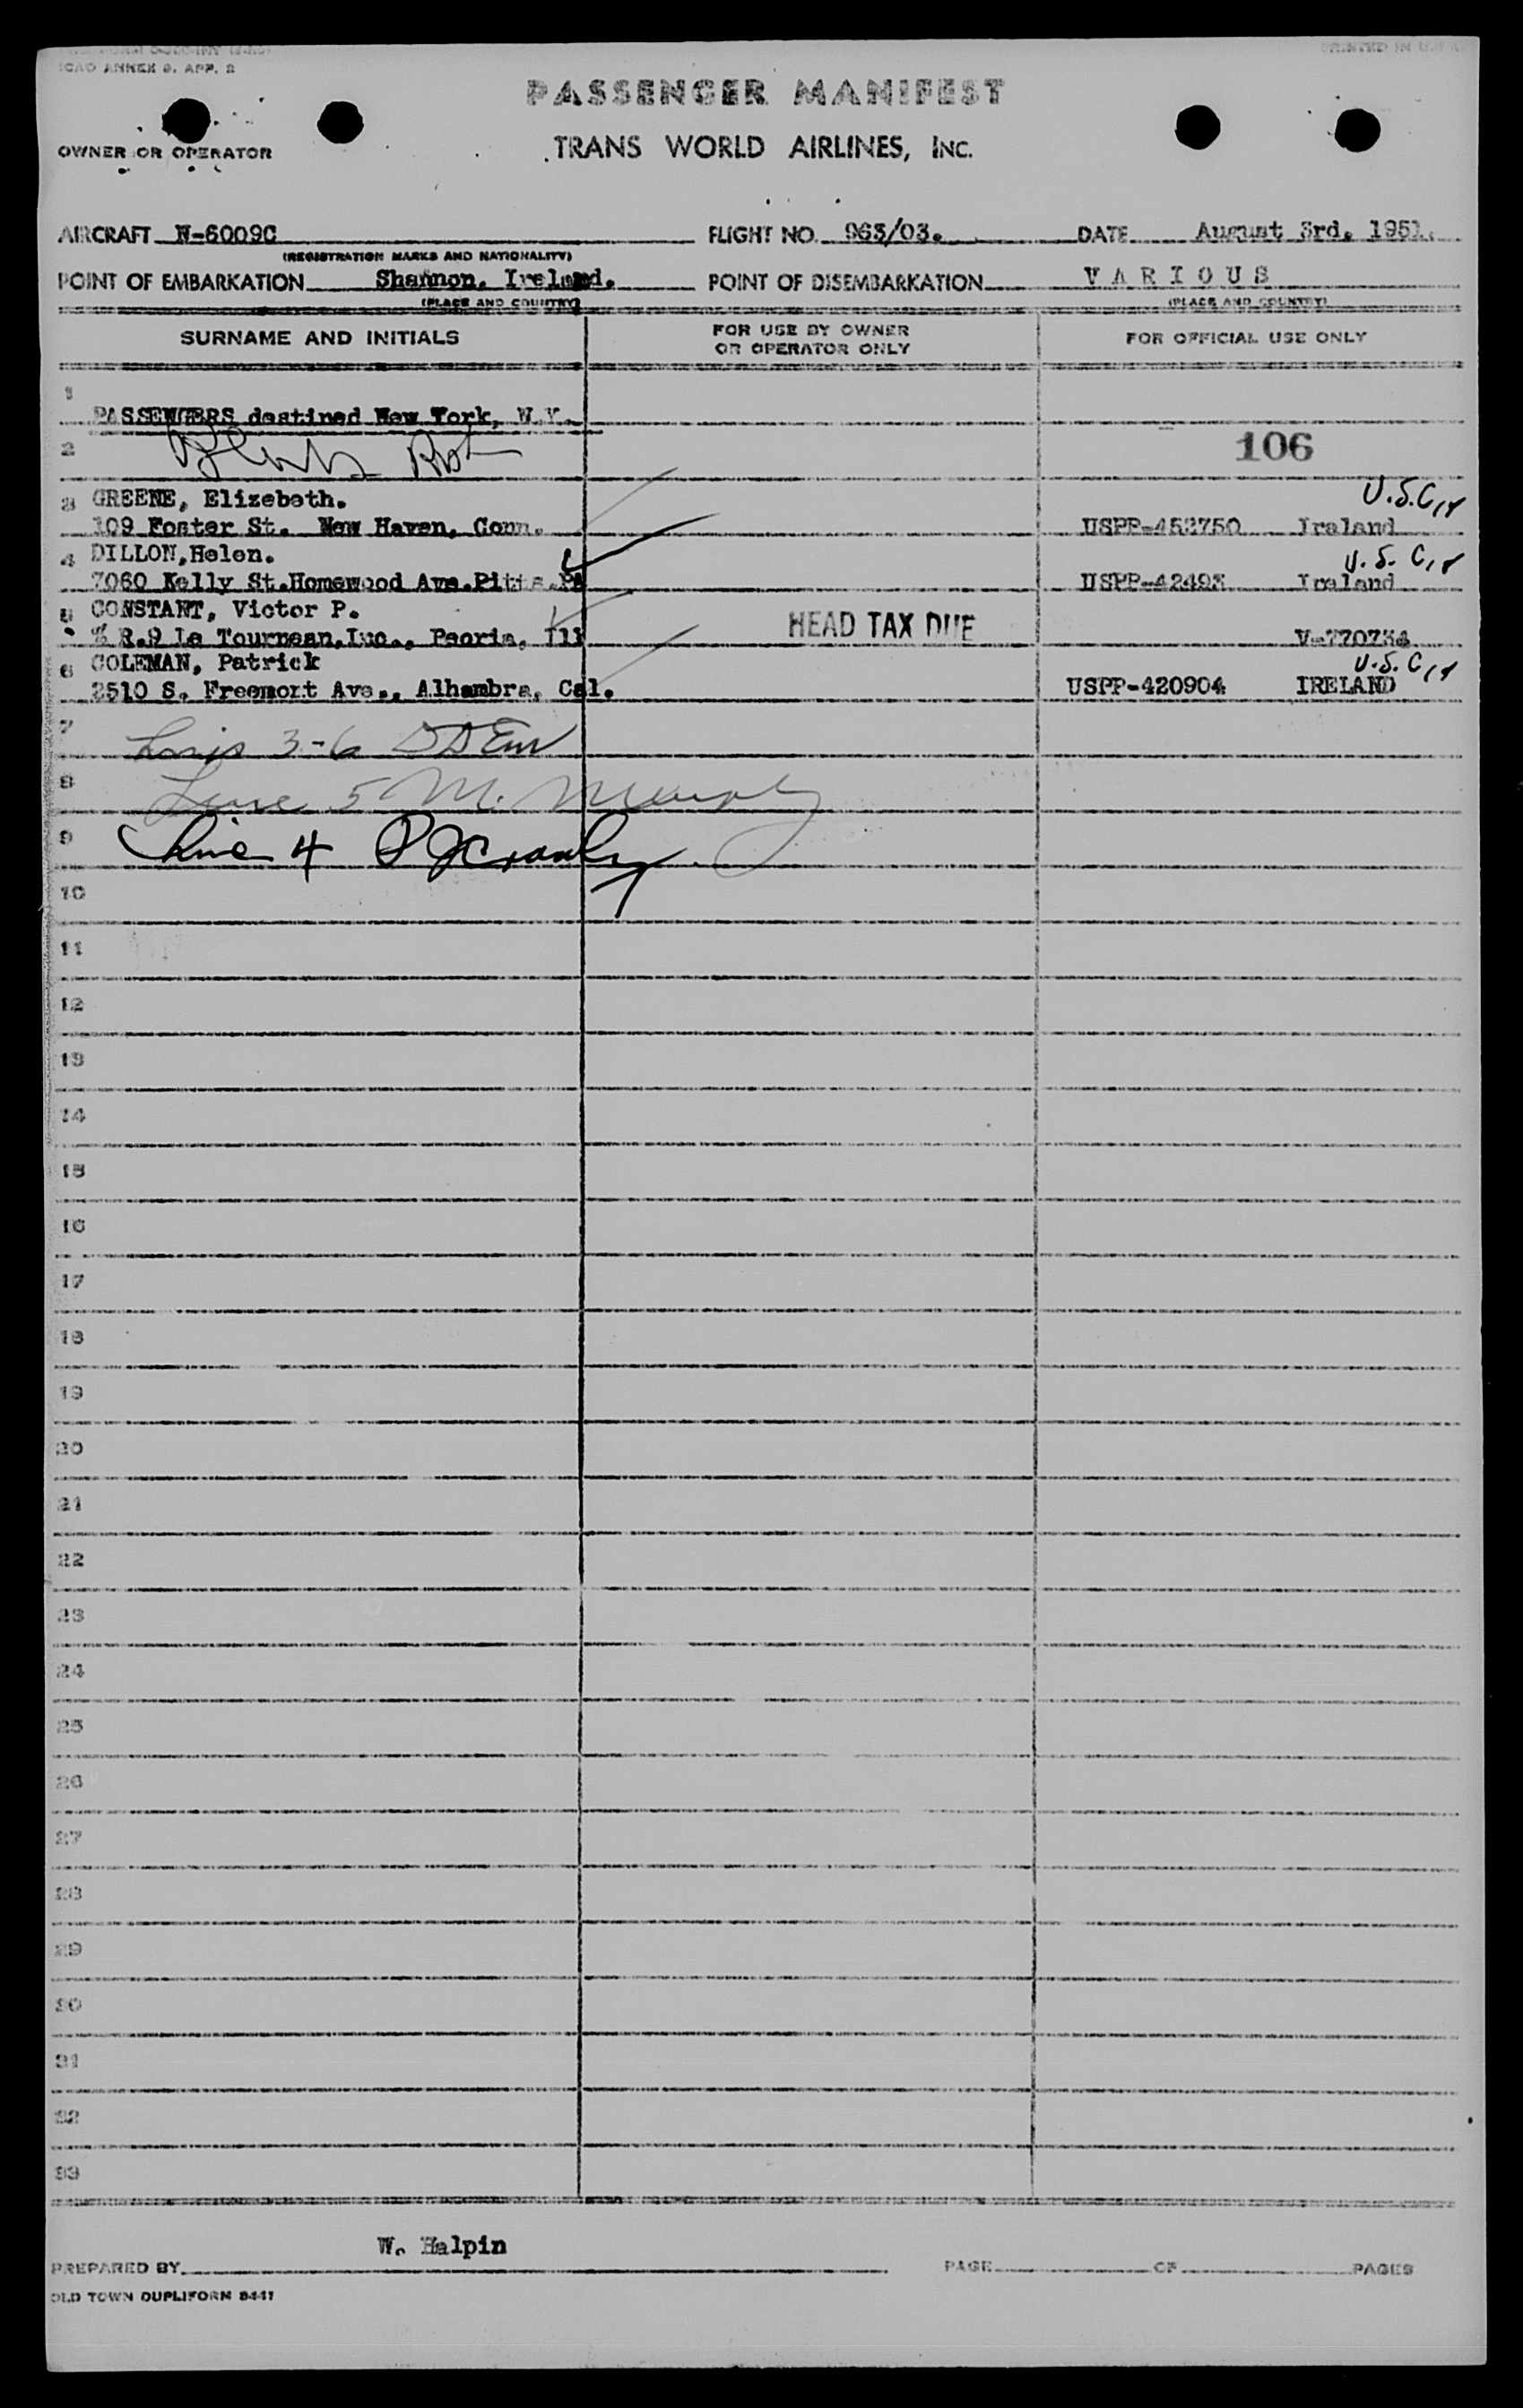 ICAO ANNEX 9, APP. 2
PRINTED IN U.S.A.
PASSENGER MANIFEST
OWNER OR OPERATOR TRANS WORLD AIRLINES, INC.
AIRCRAFT N-6009C FLIGHT NO. 963/03. DATE August 3rd. 1951.
(REGISTRATION MARKS AND NATIONALITY)
POINT OF EMBARKATION Shannon, Ireland. POINT OF DISEMBARKATION V A R I O U S
(PLACE AND COUNTRY) (PLACE AND COUNTRY)
SURNAME AND INITIALS FOR USE BY OWNER OR OPERATOR ONLY FOR OFFICIAL USE ONLY
1
PASSENGERS destined New York, N.Y.
2 106
3 GREENE, Elizebeth. U.S.Cit
109 Foster St. New Haven, Conn. USPP-453750 Ireland
4 DILLON,Helen. U.S. Cit
7060 Kelly St.Homewood Ave.Pitts.PA USPP-42493 Ireland
5 CONSTANT, Victor P.
% R.G Le Tourneau,Inc., Peoria, Ill HEAD TAX DUE V-770734
6 COLEMAN, Patrick U.S. Cit
2510 S. Freemont Ave., Alhambra, Cal. USPP-420904 IRELAND
7 3-6
8 Line 5 M. Murphy
9 Line 4
10
11
12
13
14
15
16
17
18
19
20
21
22
23
24
25
26
27
28
29
30
31
32
33
W. Halpin
PREPARED BY PAGE OF PAGES
OLD TOWN DUPLIFORM 8441